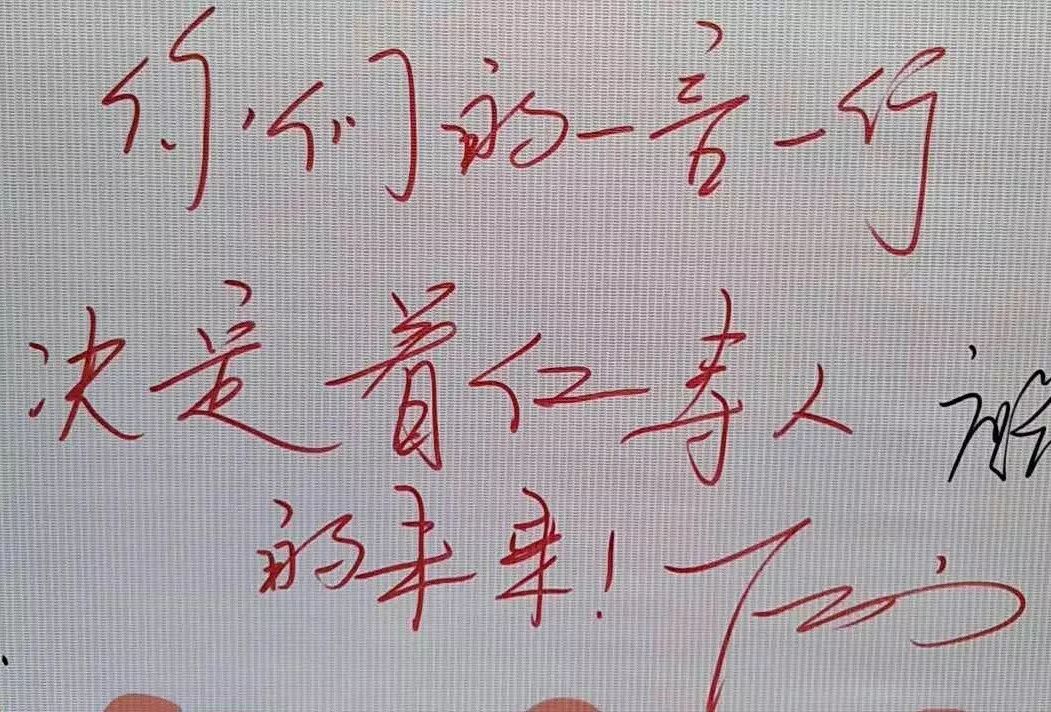 你们的一言一行
决定着仁寿人
的未来!